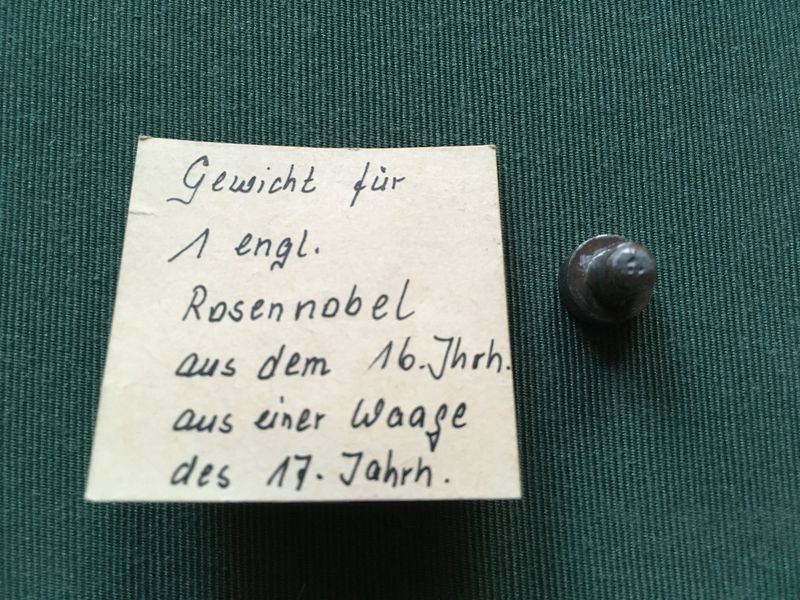 Gewicht für
1 engl.
Rosennobel
aus dem 16. Jhrh.
aus einer Waage
des 17. Jahrh.